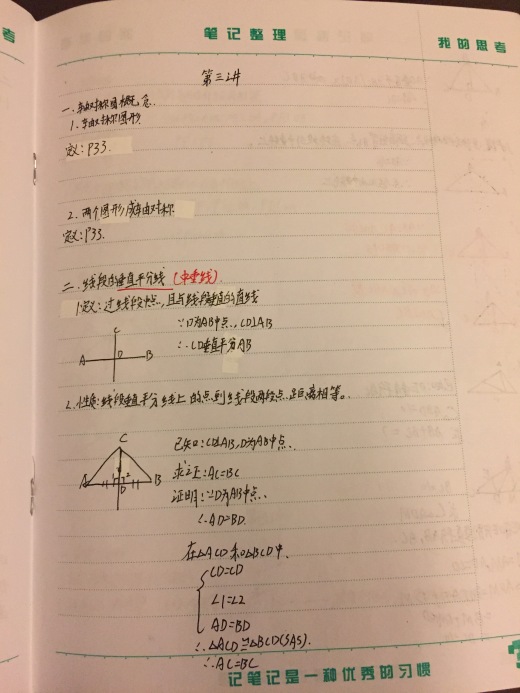 考
笔记整理
我的思考
第三讲
一.轴对称图概念.
1.轴对称图形
定义:P33.
2.两个图形成轴对称
定义:P33.
二.线段的垂直平分线(中垂线)
1.定义:过线段中点,且与线段垂直的直线
C
A D B
∵D为AB中点,CD⊥AB
∴CD垂直平分AB
2.性质:线段垂直平分线上的点到线段两段点距离相等。
C
1 2
A D B
已知:CD⊥AB,D为AB中点.
求证:AC=BC
证明:∵D为AB中点.
∴AD=BD.
在△ACD和△BCD中.
CD=CD
∠1=∠2
AD=BD
∴△ACD≌△BCD(SAS).
∴AC=BC
记笔记是一种优秀的习惯